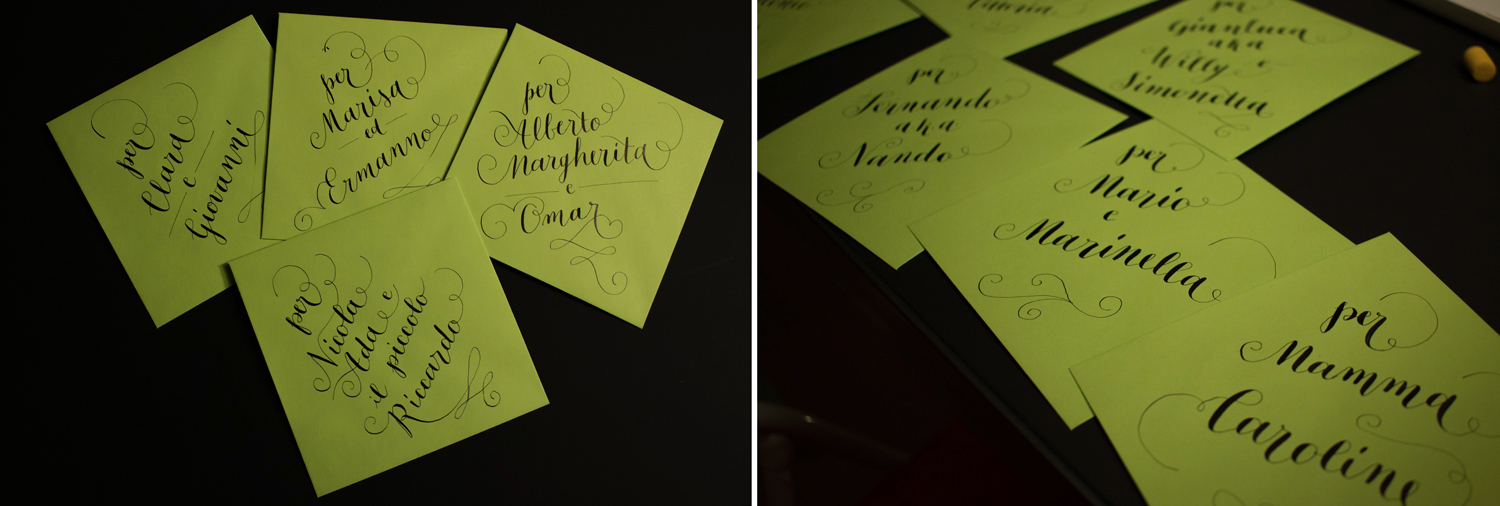 per
Clara
e
Giovanni
per
Marisa
ed
Ermanno
per
Alberto
Margherita
e
Omar
per
Nicola
Ada e
il piccolo
Riccardo
Vittoria
per
Gianluca
aka
Willy e
Simonetta
per
Fernando
aka
Nando
per
Mario
e
Marinella
per
Mamma
Caroline